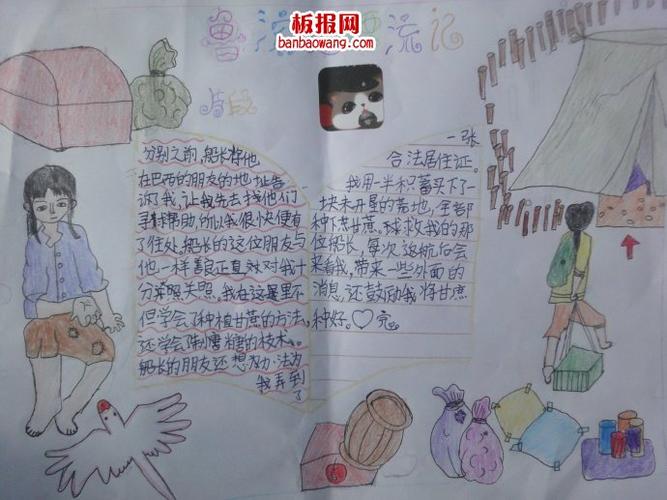 板报网
banbaowang.com
鲁滨逊漂流记
片段
分别之前,船长将他
在巴西的朋友的地址告
诉了我,让我先去找他们
寻找帮助,所以我很快便有
了住处。船长的这位朋友与
他一样善良正直,对我十
分关照。我在这里不
但学会了种植甘蔗的方法,
还学会制糖的技术。
船长的朋友还想办法为
我弄到
了
一张
合法居住证。
我用一半积蓄买下了一
块未开垦的荒地,全部
种下甘蔗。拯救我的那
位船长,每次返航后会
来看我,带来一些外面的
消息,还鼓励我将甘蔗
种好。♡完。